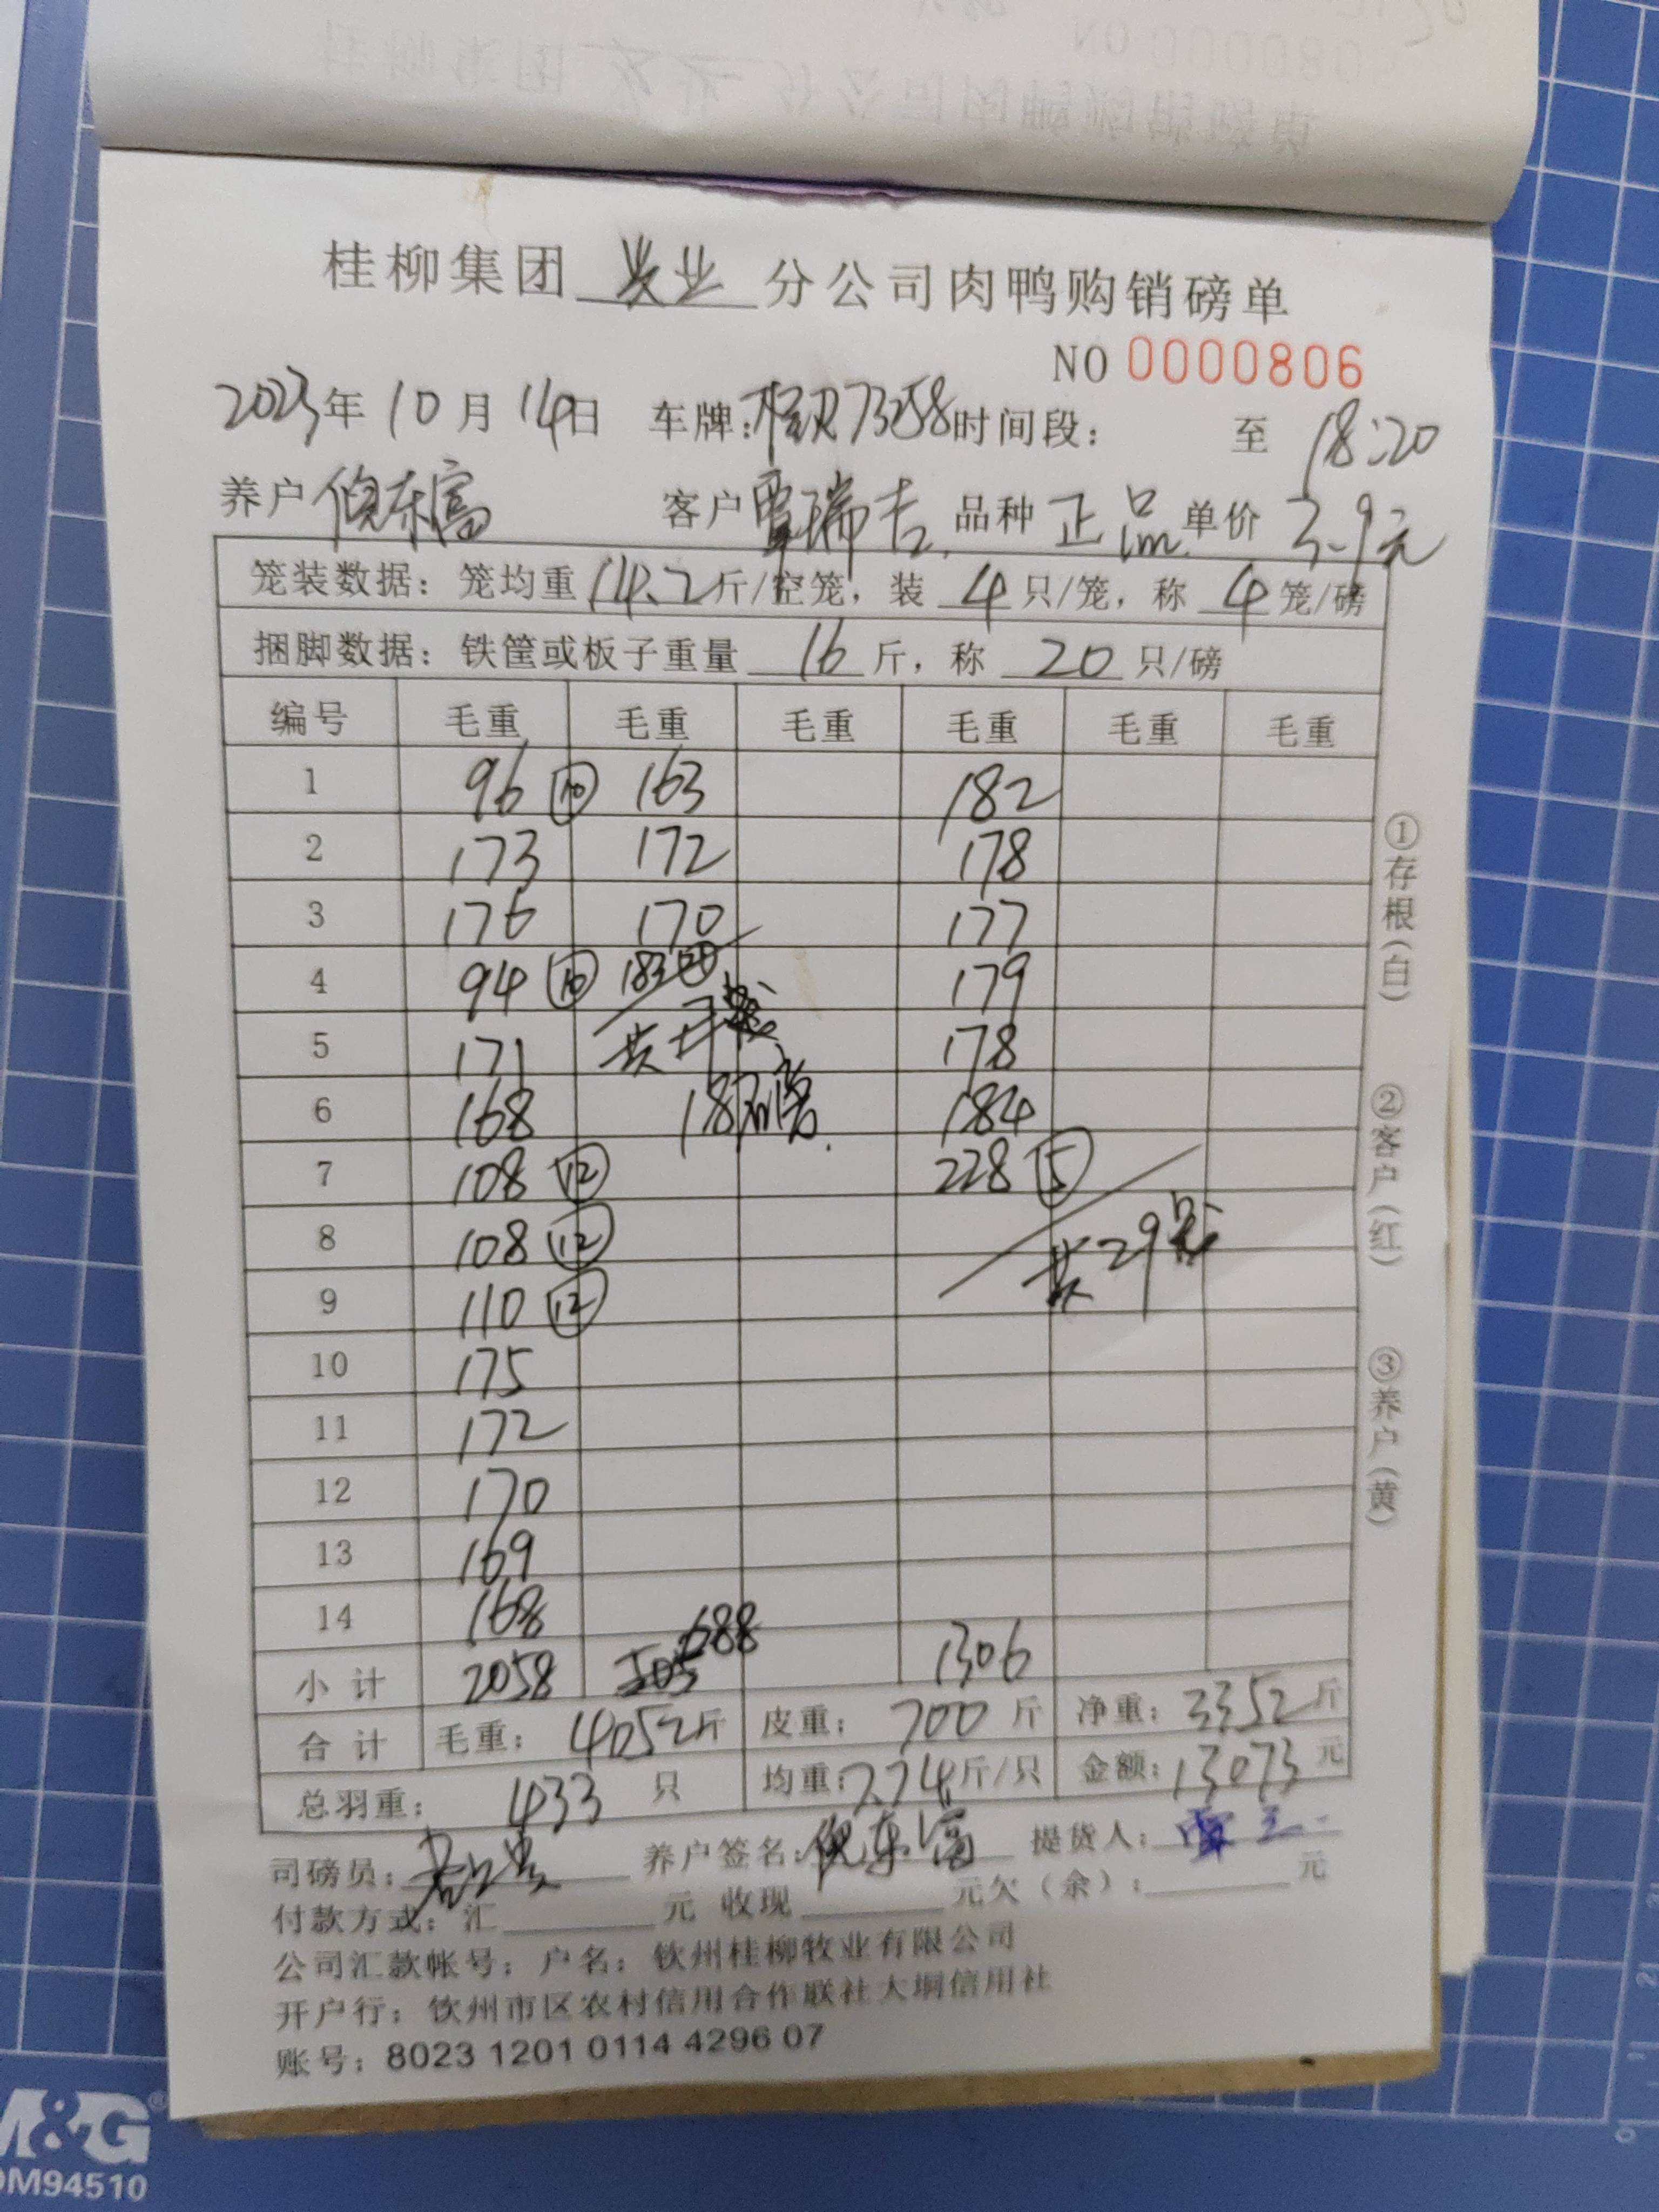 桂柳集团 兴业 分公司肉鸭购销磅单
NO 0000806
2023年 10月 14日 车牌: 73258 时间段: 至 18:20
养户 东富 客户 覃瑞吉 品种 正品 单价 3.9元
笼装数据: 笼均重 14.2 斤/空笼, 装 4 只/笼, 称 4 笼/磅
捆脚数据: 铁筐或板子重量 16 斤, 称 20 只/磅
编号 毛重 毛重 毛重 毛重 毛重 毛重
1 96 ⑩ 163 182
2 173 172 178
3 176 170 177
4 94 ⑩ 183 179
5 171 共 178
6 168 18磅 184
7 108 ⑫ 228 ⑤
8 108 ⑫ 共29笼
9 110 ⑫
10 175
11 172
12 170
13 169
14 168
小计 2058 688 1306
合计 毛重: 4052斤 皮重: 700 斤 净重: 3352 斤
总羽重: 433 只 均重: 7.74斤/只 金额: 13073 元
司磅员: 养户签名: 东富 提货人: 覃
付款方式: 汇 元 收现 元欠(余): 元
公司汇款帐号: 户名: 钦州桂柳牧业有限公司
开户行: 钦州市区农村信用合作联社大垌信用社
账号: 8023 1201 0114 4296 07
①存根(白)
②客户(红)
③养户(黄)
M&G